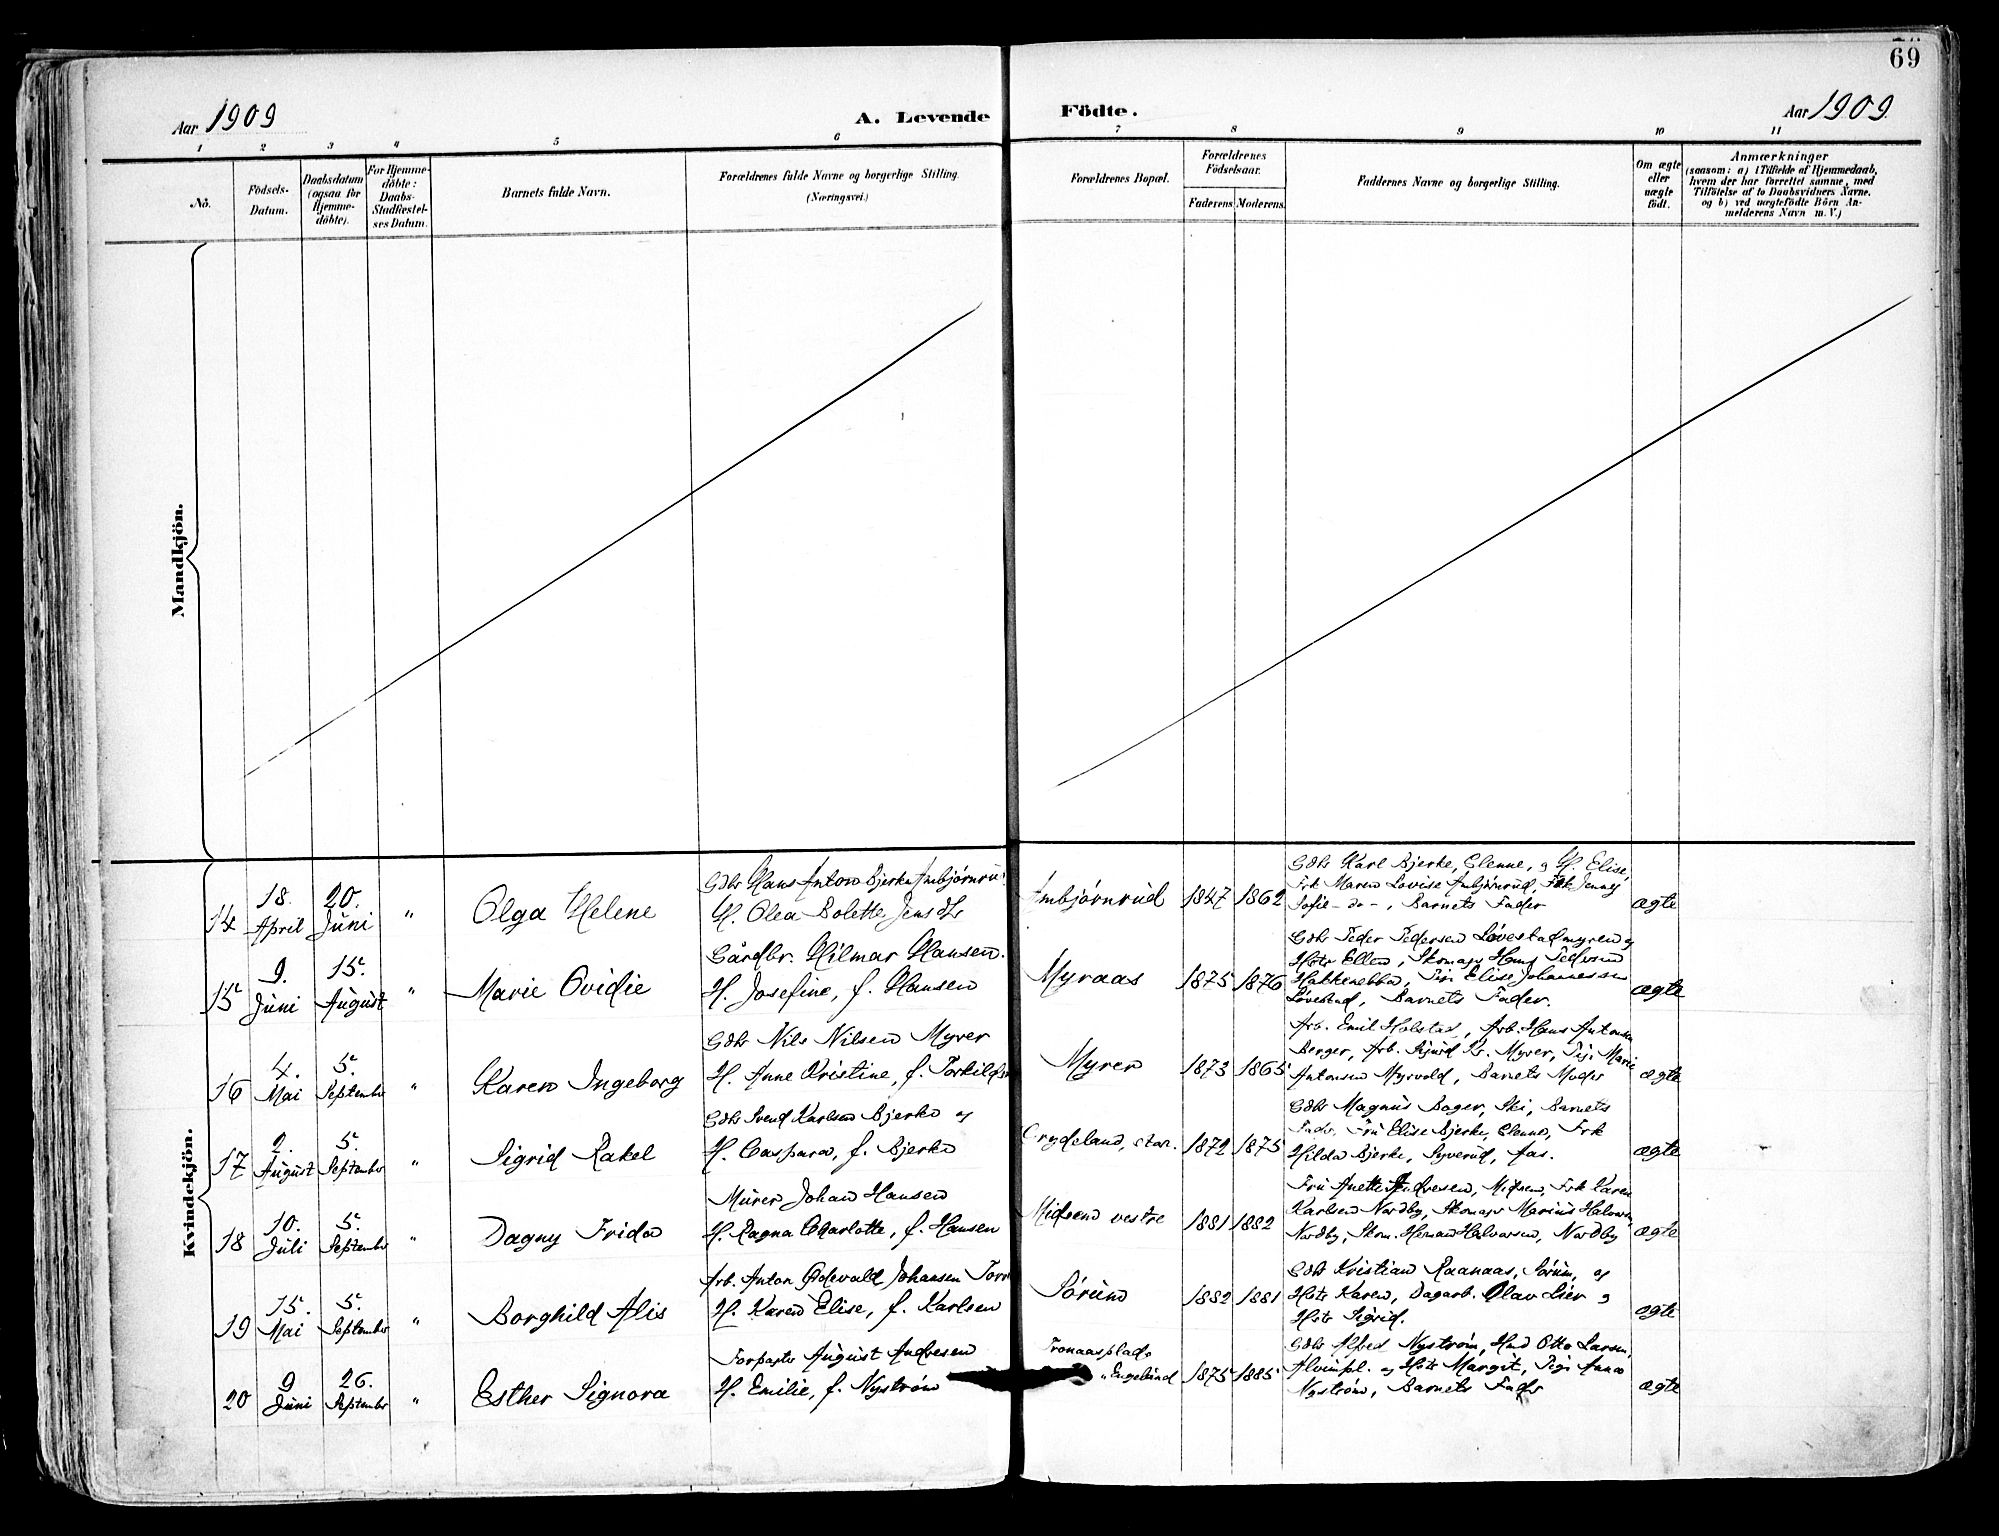 69
Aar 1909
A. Levende
Födte.
Aar 1909.
1 2 3 4 5 6 7 8 9 10 11
No.
Födsels-
Datum.
Daabsdatum
(ogsaa for
Hjemme-
döbte).
For Hjemme-
döbte:
Daabs-
Stadfæstel-
ses Datum.
Barnets fulde Navn.
Forældrenes fulde Navne og borgerlige Stilling.
(Næringsvei.)
Forældrenes Bopæl.
Forældrenes
Födselsaar.
Faderens
Moderens.
Faddernes Navne og borgerlige Stilling.
Om ægte
eller
uægte
födt.
Anmærkninger
(saasom: a) i Tilfælde af Hjemmedaab,
hvem der har forrettet samme, med
Tilföielse af to Daabsvidners Navne.
og b) ved uægtefödte Börn An-
melderens Navn m. V.)
Mandkjön.
Kvindekjön.
14
18.
April
20.
Juni
"
Olga Helene
Gdbr Hans Anton Bjerke Ambjørnrud
H. Olea Bolette Jensdtr
Ambjørnrud
1847 1862
Gdbr Karl Bjerke, Glenne, og H. Elise,
Frk Maren Lovise Ambjørnrud, Frk. Jenny
Sofie - do - , Barnets Fader
ægte
15
9.
Juni
15.
August
"
Marie Ovidie
Gårdbr. Hilmar Hansen.
H. Josefine, f. Hansen
Myraas
1875 1876
Gdbr Peder Pedersen Løvestadmyren og
Hstr Ellen, Skomagr Hans
Hakkenebba, Pige Elise Johannessen
Løvestad, Barnets Fader.
ægte
16
4.
Mai
5.
September
"
Karen Ingeborg
Gdbr Nils Nilsen Myrer
H. Anne Kristine, f. Torkildsen
Myrer
1873 1865
Arb. Emil Holstad, Arb. Hans Antonsen
Berger, Arb. Sigurd Kr. Myrer, Pige Marie
Antonsen Myrvold, Barnets Moder
ægte
17
2.
August
5.
September
"
Sigrid Rakel
Gdbr Svend Karlsen Bjerke og
H. Caspara, f. Bjerke
1872 1875
Gdbr Magnus Bager, Ski, Barnets
Fader, Fru Elise Bjerke, Glenne, Frk
Hilda Bjerke, Syverud, Aas.
ægte
18
10.
Juli
5.
September
"
Dagny Frida
Murer Johan Hansen
H. Ragna Charlotte, f. Hansen
Midsem vestre
1881 1882
Fru Anette Andresen, Midsem, Frk Karen
Karlsen Nordby, Skomagr Marius Halvorsen,
Nordby, Skom. Herman Halvorsen, Nordby
ægte
19
15.
Mai
5.
September
"
Borghild Alis
Arb. Anton Edevald Johansen
H. Karen Elise, f. Karlsen
Sørum
1882 1881
Gdbr Kristian Raanaas, Sørum, og
Hstr Karen, Dagarb. Olav Lier og
Hstr Sigrid.
ægte
20
9
Juni
26.
September
"
Esther Signora
Forpagter August Andresen
H. Emilie, f. Nystrøm
Tronaasplads
"Engelund
1875 1885
Gdbr Alfred Nystrøm, Hmd Otto Larsen,
og Hstr Margit, Pige Anna
Nystrøm, Barnets Fader
ægte